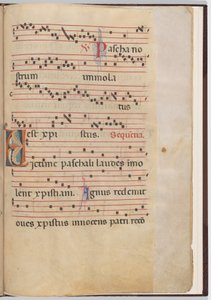 ℣. Pascha no
strum immola
tus
est xpi stus. Sequẽtia.
Victime paschali laudes imo
lent xpistiani. Agnus redemit
oues xpistus innocens patri reco